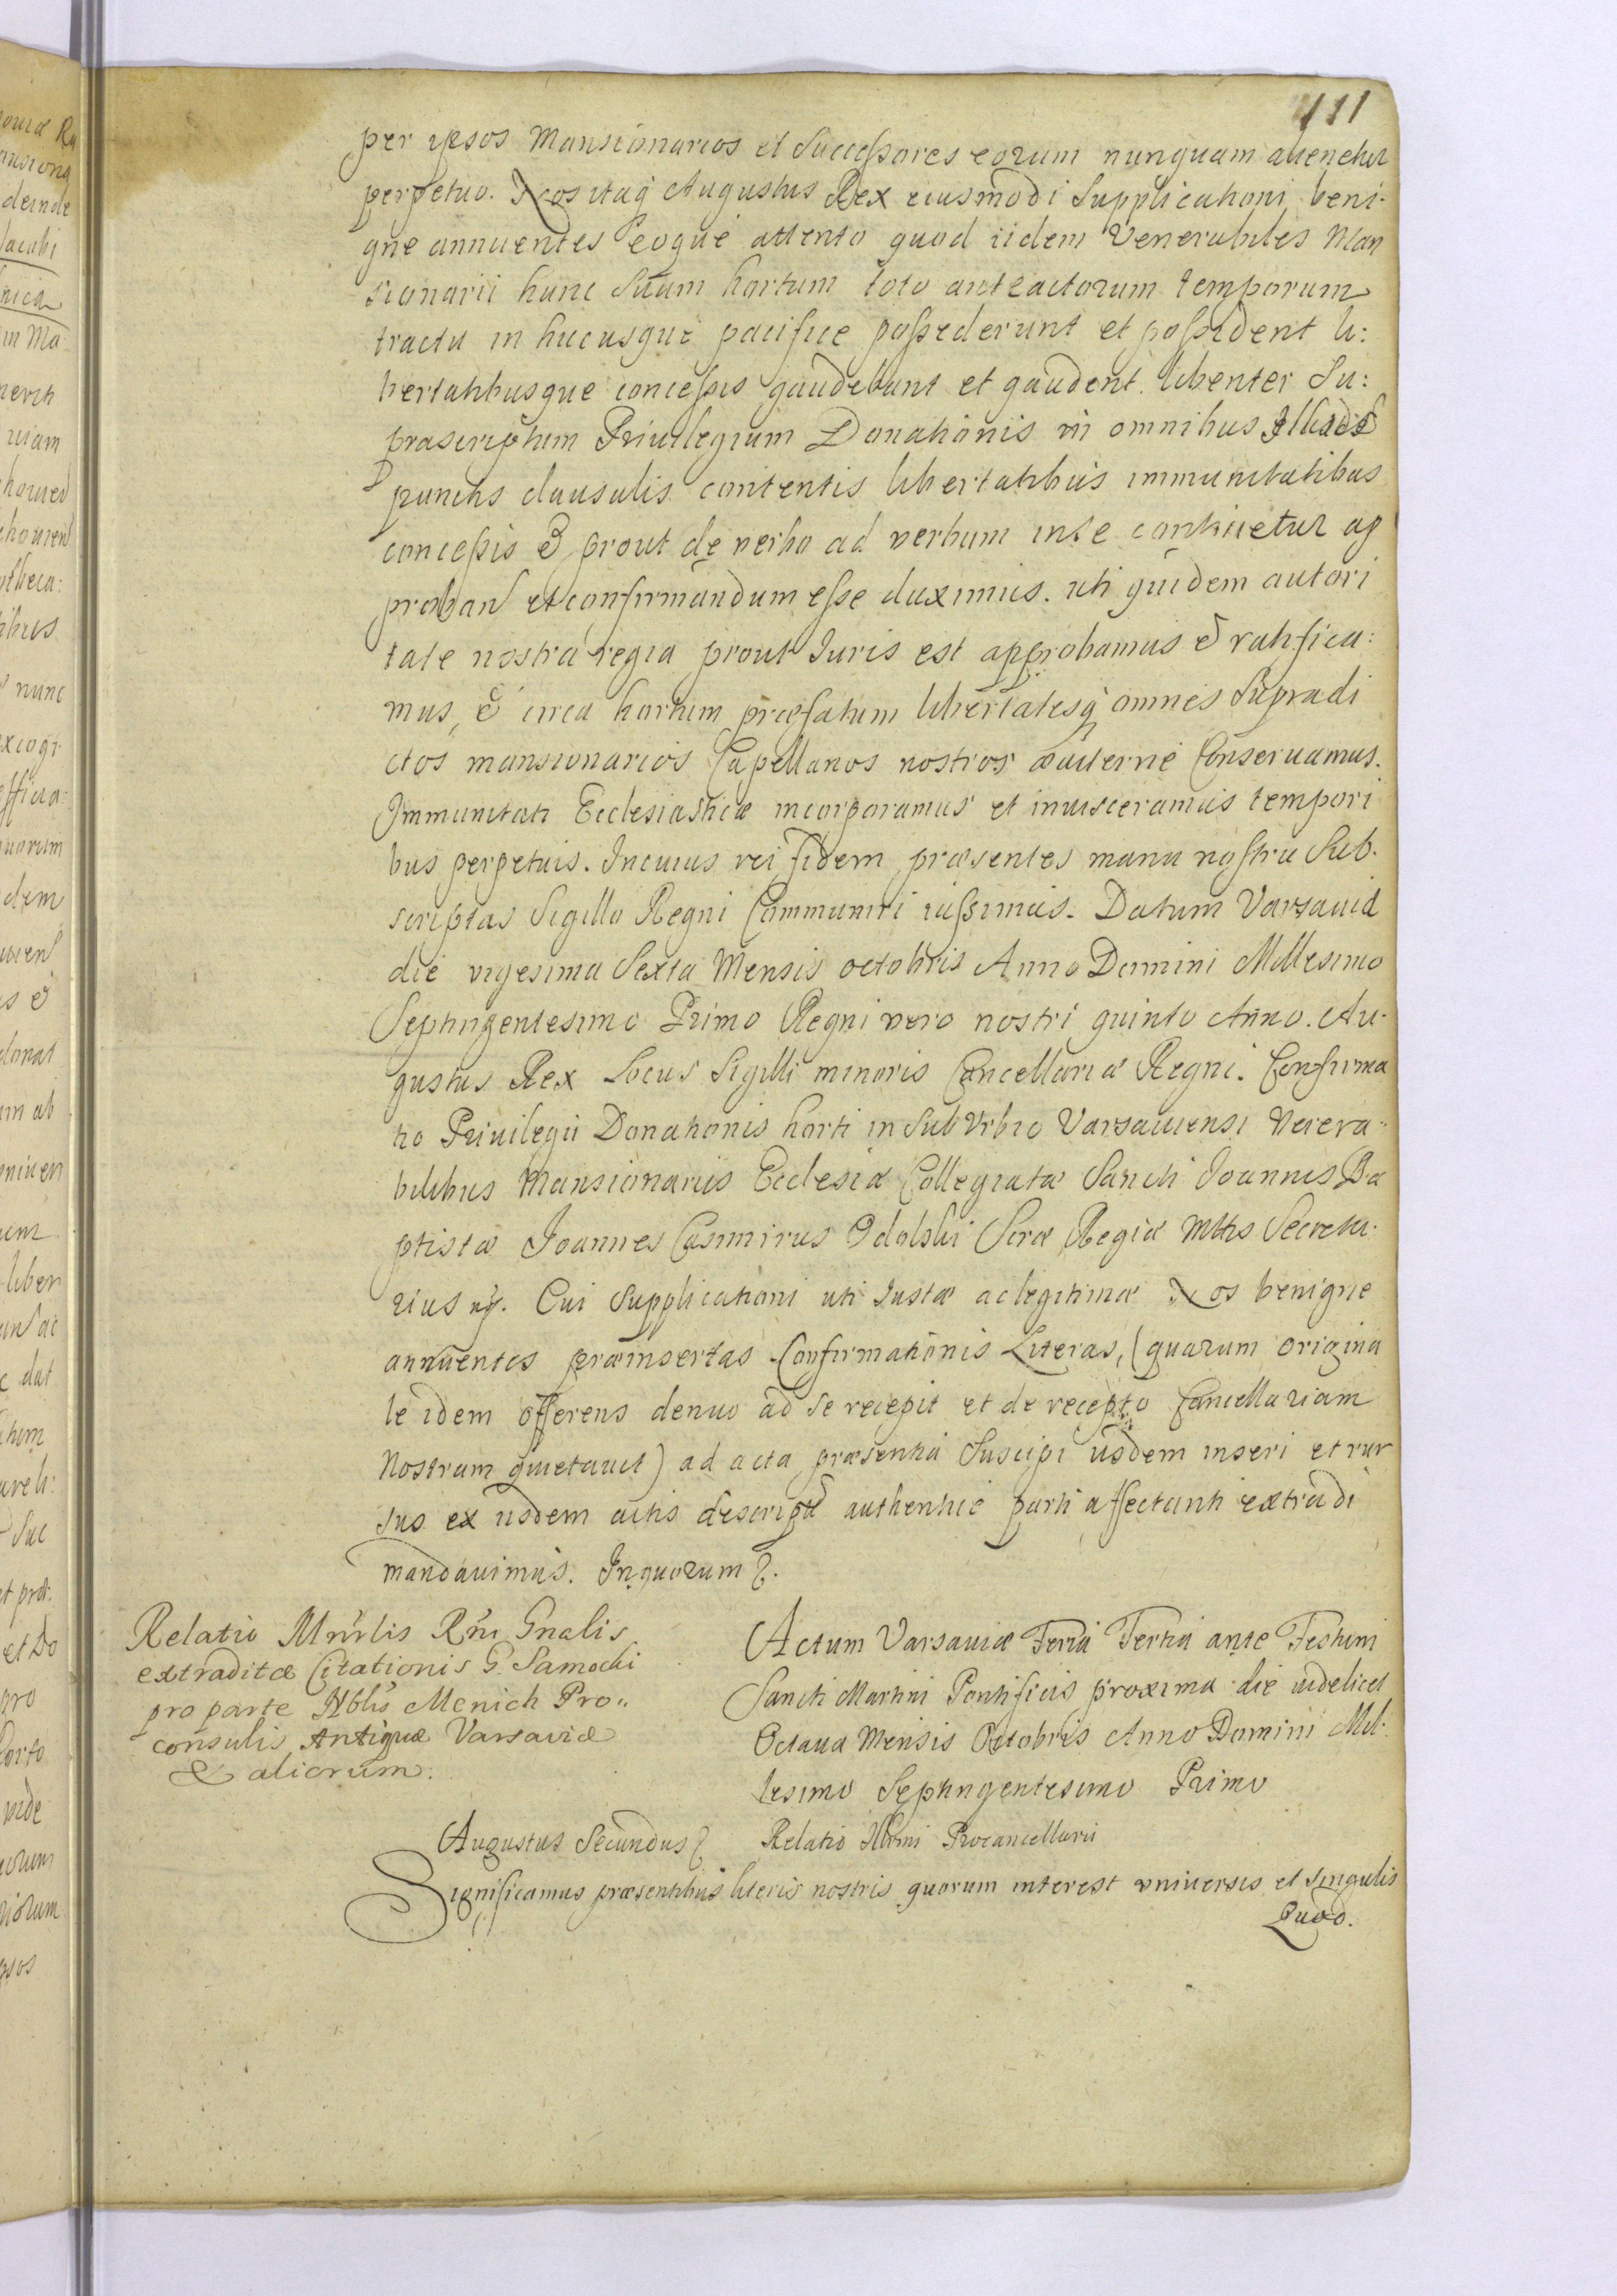 111
per ipsos Mansionarios et Successores eorum nunquam avenetur
perpetuo. Nos itaq Augustus Rex eiusmodi Supplicationi beni-
gne annuentes eoque attento quod iidem Venerabiles Man
sionarii hunc Suum hortum toto anteactorum temporum
tractu in hucusque pacifice possederunt et possident li:
bertatibusque concessis gaudebant et gaudent. libenter Su:
prascriptum Privilegium Donationis in omnibus
punctis clausulis contentis libertatibus immunitatibus
concessis & prout de verbo ad verbum in se continetur ap
proban et confirmandum esse duximus. uti quidem autori
tate nostra regia prout Iuris est approbamus & ratifica:
mus, & circa hortum præfatum libertatesq omnes Supradi
ctos mansionarios Capellanos nostros æviterne Conservamus.
Immunitati Ecclesiasticæ incorporamus et invisceramus tempori
bus perpetuis. In cuius rei fidem præsentes manu nostra Sub-
scriptas Sigillo Regni Communiri iussimus. Datum Varsaviæ
die vigesima Sexta Mensis octobris Anno Domini Millesimo
Septingentesimo Primo Regni vero nostri quinto Anno. Au-
gustus Rex Locus Sigilli minoris Cancellariæ Regni. Confirma
tio Privilegii Donationis horti in SubVrbio Varsaviensi Venera-
bilibus Mansionariis Ecclesiæ Collegiatæ Sancti Joannis Ba
ptistæ Joannes Casimirus Odolski Sacræ Regiæ Mttis Secreta-
rius mp. Cui Supplicationi uti Iustæ ac legitimæ Nos benigne
annuentes præinsertas Confirmationis Literas, (quarum origina
le idem offerens denuo ad se recepit et de recepto Cancellariam
Nostram quietavit) ad acta præsentia Suscipi iisdem inseri et rur
sus ex iisdem actis descripta authentice parti affectanti extradi
mandavimus. In quorum &.
Relatio Mnrlis Rni Gnalis
extraditæ Citationis G. Samochi
pro parte Nblis Menich Pro„
consulis Antiquæ Varsaviæ
& aliorum.
Actum Varsaviæ Feria Tertia ante Festum
Sancti Martini Pontificis proxima die videlicet
Octava Mensis Octobris Anno Domini Mil-
lesimo Septingentesimo Primo
Augustus Secundus &
Relatio Illmi Procancellarii
Significamus præsentibus literis nostris quorum interest vniversis et singulis
Quod.